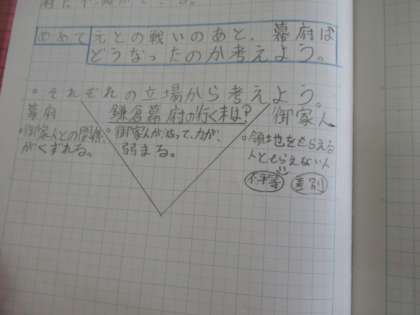 めあて 元との戦いのあと、幕府は
どうなったのか考えよう。
・それぞれの立場から考えよう。
幕府
・御家人との関係
がくずれる。
鎌倉幕府の行く末は?
・御家人が
弱まる。
御家人
・領地をもらえる
人ともらえない人
不平等 差別